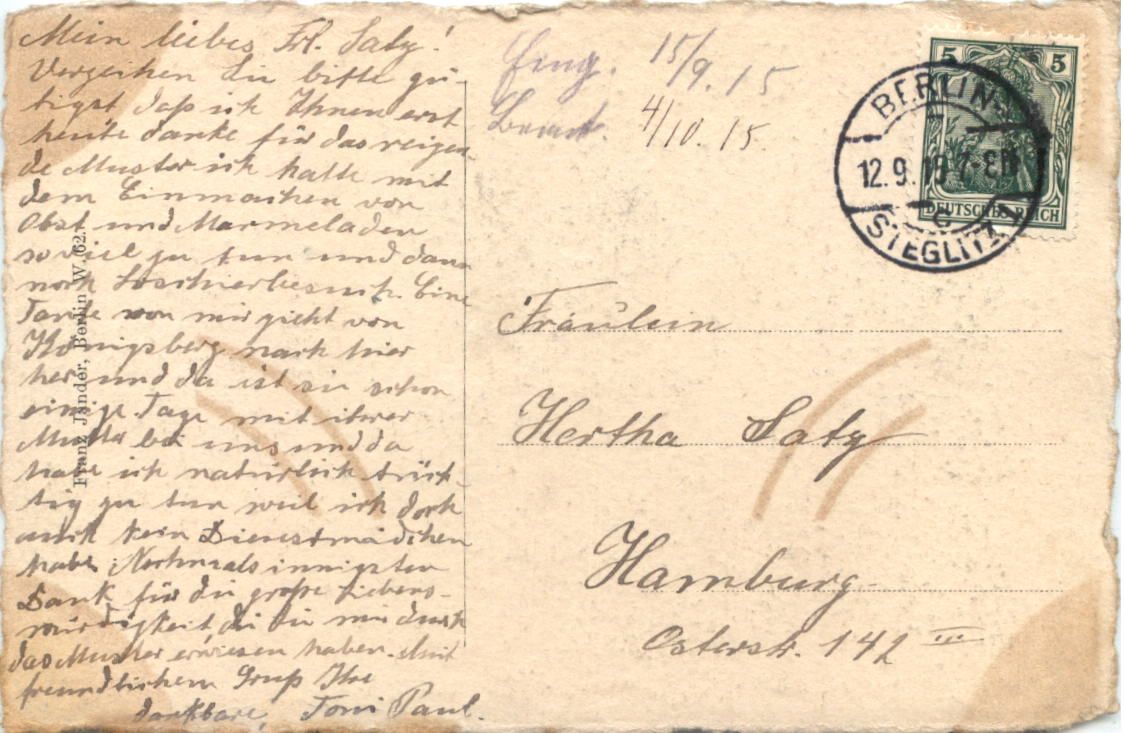 Mein liebes Frl. Saty!
Verzeihen Sie bitte gü-
tigst daß ich Ihnen erst
heute danke für das reizen-
de Muster ich hatte mit
dem Einmachen von
Obst und Marmeladen
so viel zu tun und dann
noch Logierbesuch. Eine
Tante von mir zieht von
Königsberg nach hier
her und da ist sie schon
einige Tage mit ihrer
Mutter bei uns und da
habe ich natürlich tüch-
tig zu tun weil ich doch
auch kein Dienstmädchen
habe. Nochmals innigsten
Dank für die große Liebens-
würdigkeit die Sie mir durch
das Muster erwiesen haben. Mit
freundlichem Gruß Ihre
dankbare, Toni Paul.
Franz Jander, Berlin W. 62.
Eing. 15/9.15
Beant. 4/10.15.
5 5
DEUTSCHES REICH
BERLIN-
12.9.15 7-8N
STEGLITZ
Fräulein
Hertha Saty
Hamburg
Osterstr. 142 III